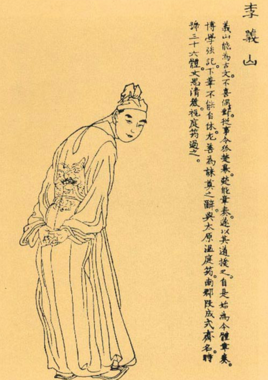 李義山
義山能為古文。不喜偶對。從事令狐楚幕。楚能章奏。遂以其道授之。自是始為今體章奏。
博學強記。下筆不能自休。尤善為誄奠之辭。與太原溫庭筠。南郡段成式齊名。時
號三十六體。文思清麗。庭筠過之。